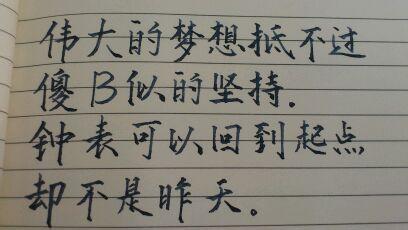 伟大的梦想抵不过
傻B似的坚持.
钟表可以回到起点
却不是昨天。